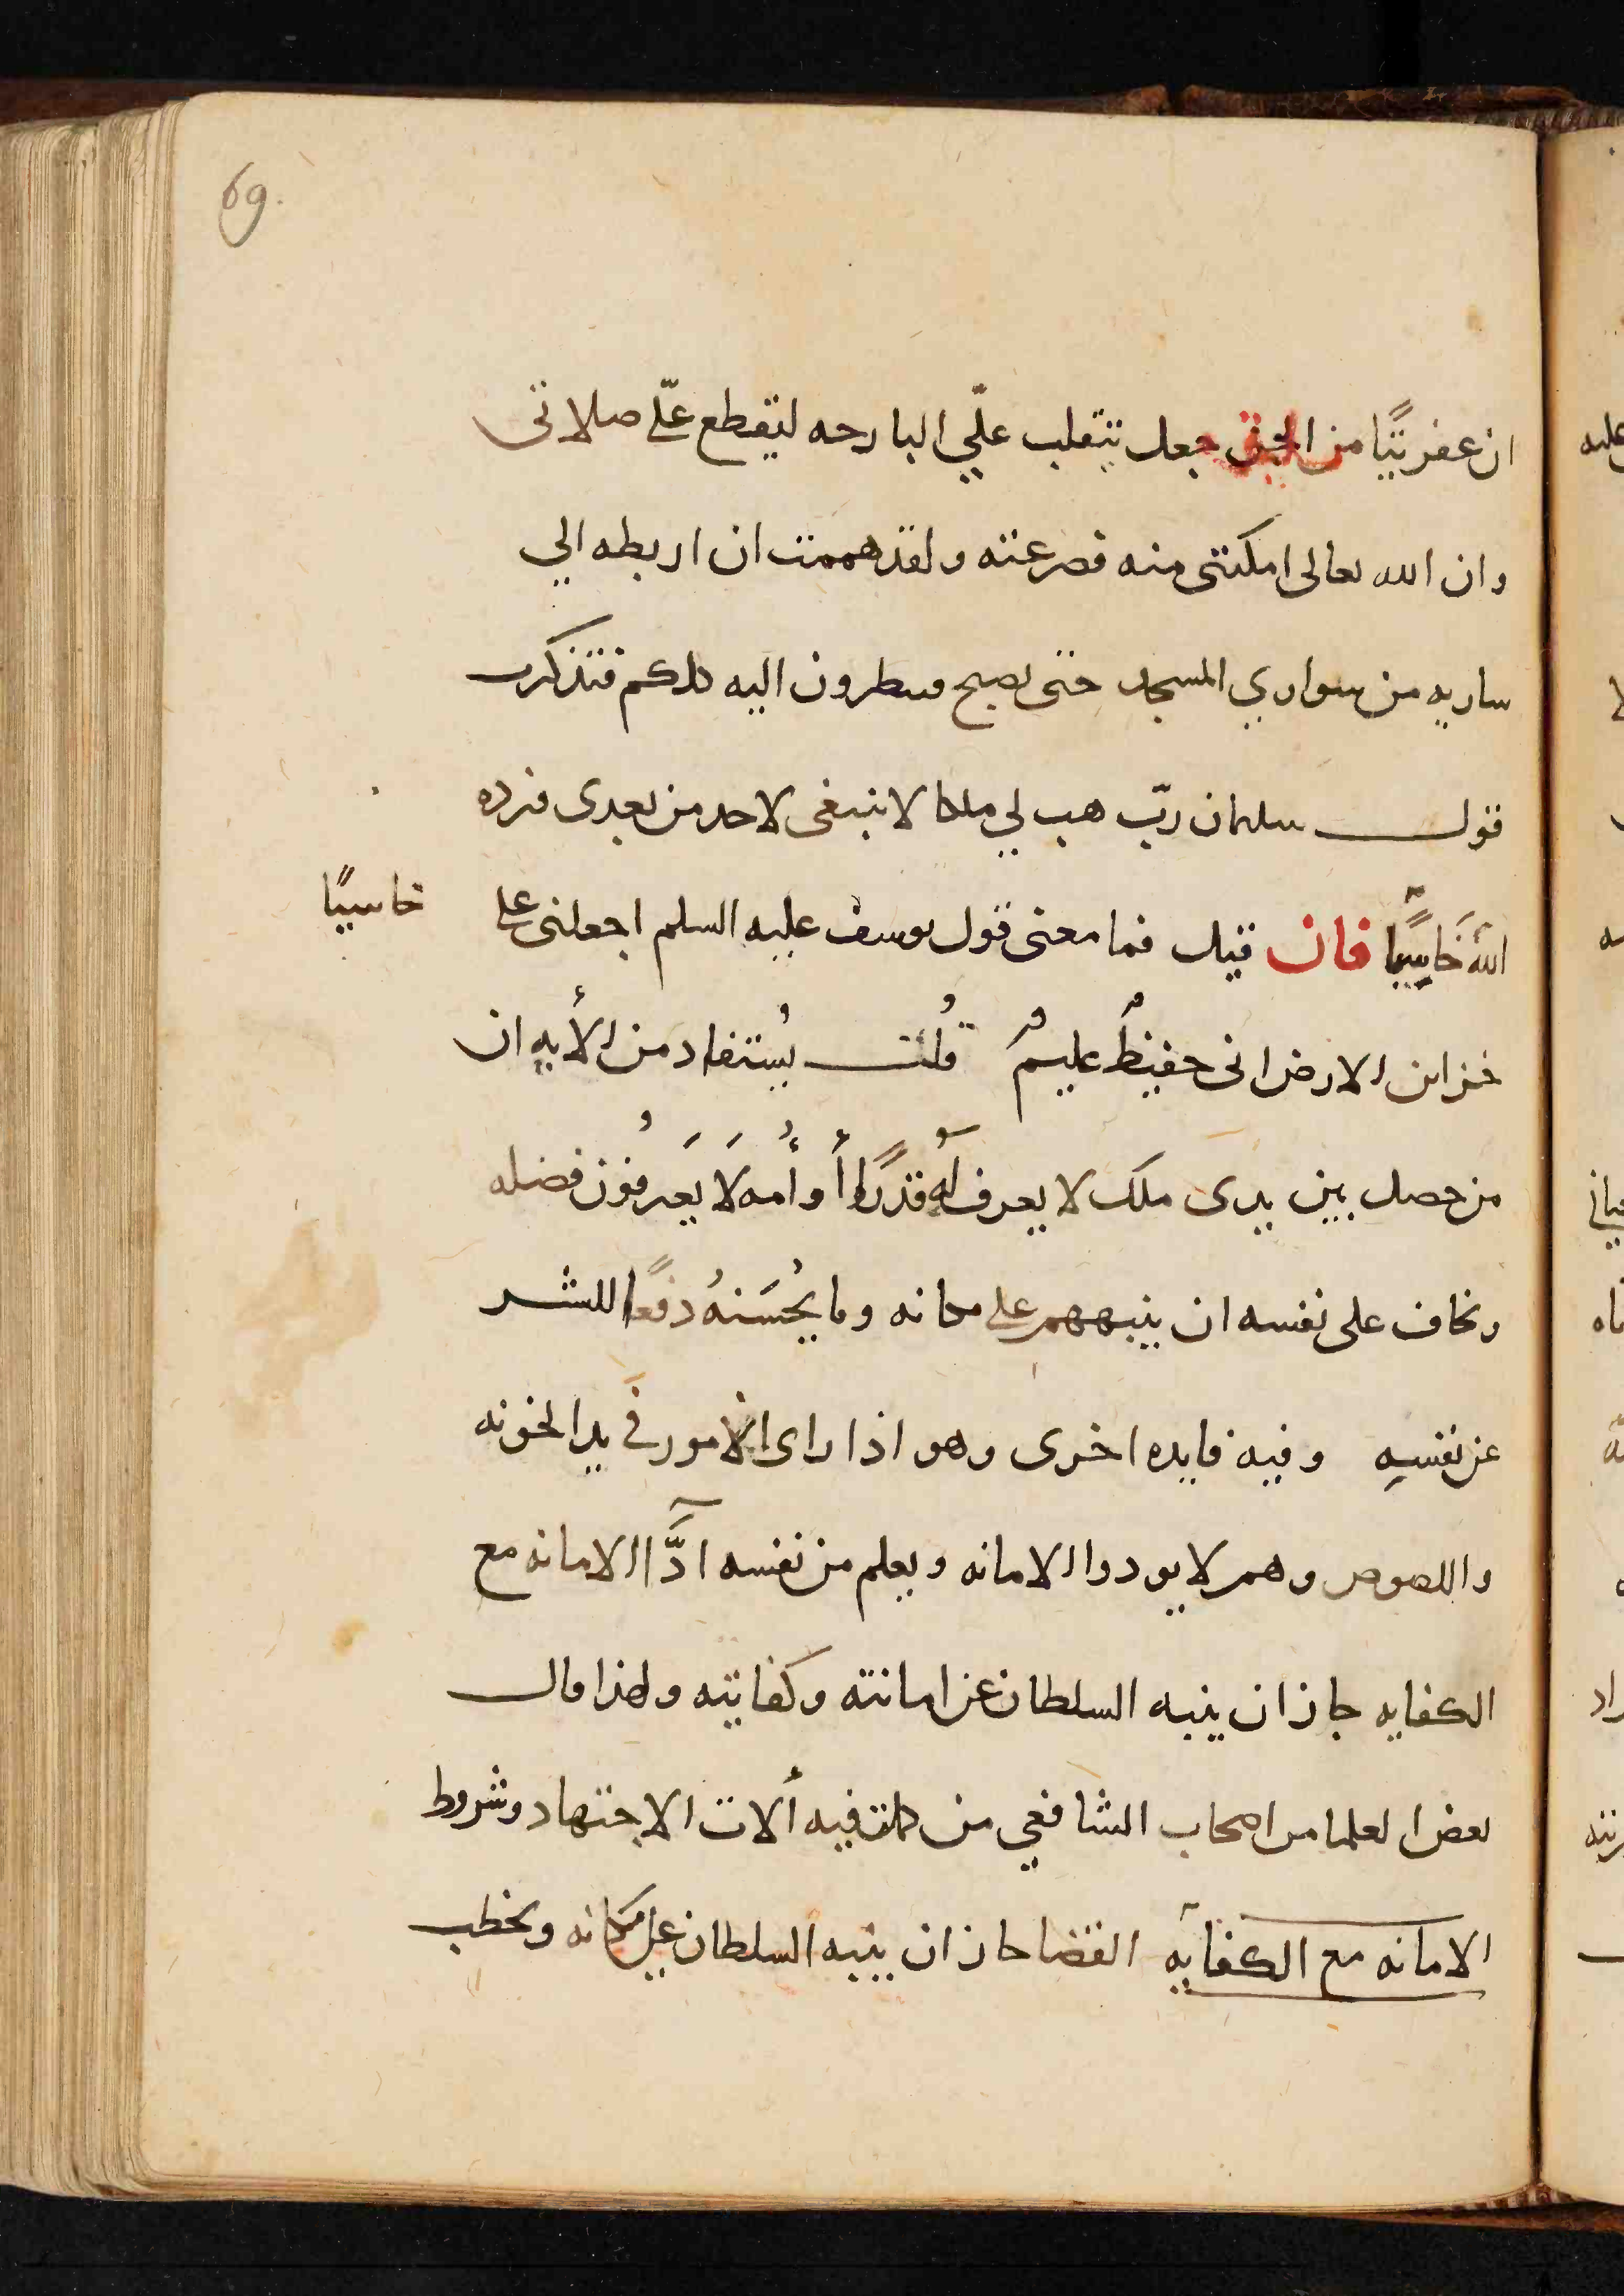 69.
ان عفريتًا من الجن جعل يتقلب عليّ البارحه ليقطع عليّ صلاتي
وان الله تعالى امكنني منه فصرعته ولقد هممت ان اربطه الي
ساريه من سواري المسجد حتى تصبح وتنظرون اليه كلكم فتذكرت
قول سليمان ربّ هب لي ملكا لا ينبغي لاحد من بعدى فرده
اللهُ خَاسِيًا فان قيل فما معنى قول يوسف عليه السلم اجعلنى على
خاسيًا
خزاين الارض انى حفيظٌ عليمٌ قُلت يُستفاد من الأيهِ ان
من حصل بين يدى ملك لا يعرف لهُ قدرًا أو أُمه لَا يَعرفُون فضله
وخاف على نفسه ان ينبههم على مكانه وما يُحسَنهُ دفعًا للشر
عن نفسهِ وفيه فايده اخرى وهو اذا راى الامور في يد الخونه
واللصوص وهم لا يودوا الامانه ويعلم من نفسه ادَّا الامانه مع
الكفايه جاز ان ينبه السلطان عن امانته وكفايته ولهذا قال
بعض العلما من اصحاب الشافعي من كملت فيه ألات الاجتهاد وشروط
الامانه مع الكفايه القضا جاز ان ينبه السلطان على مكانه ويخطب